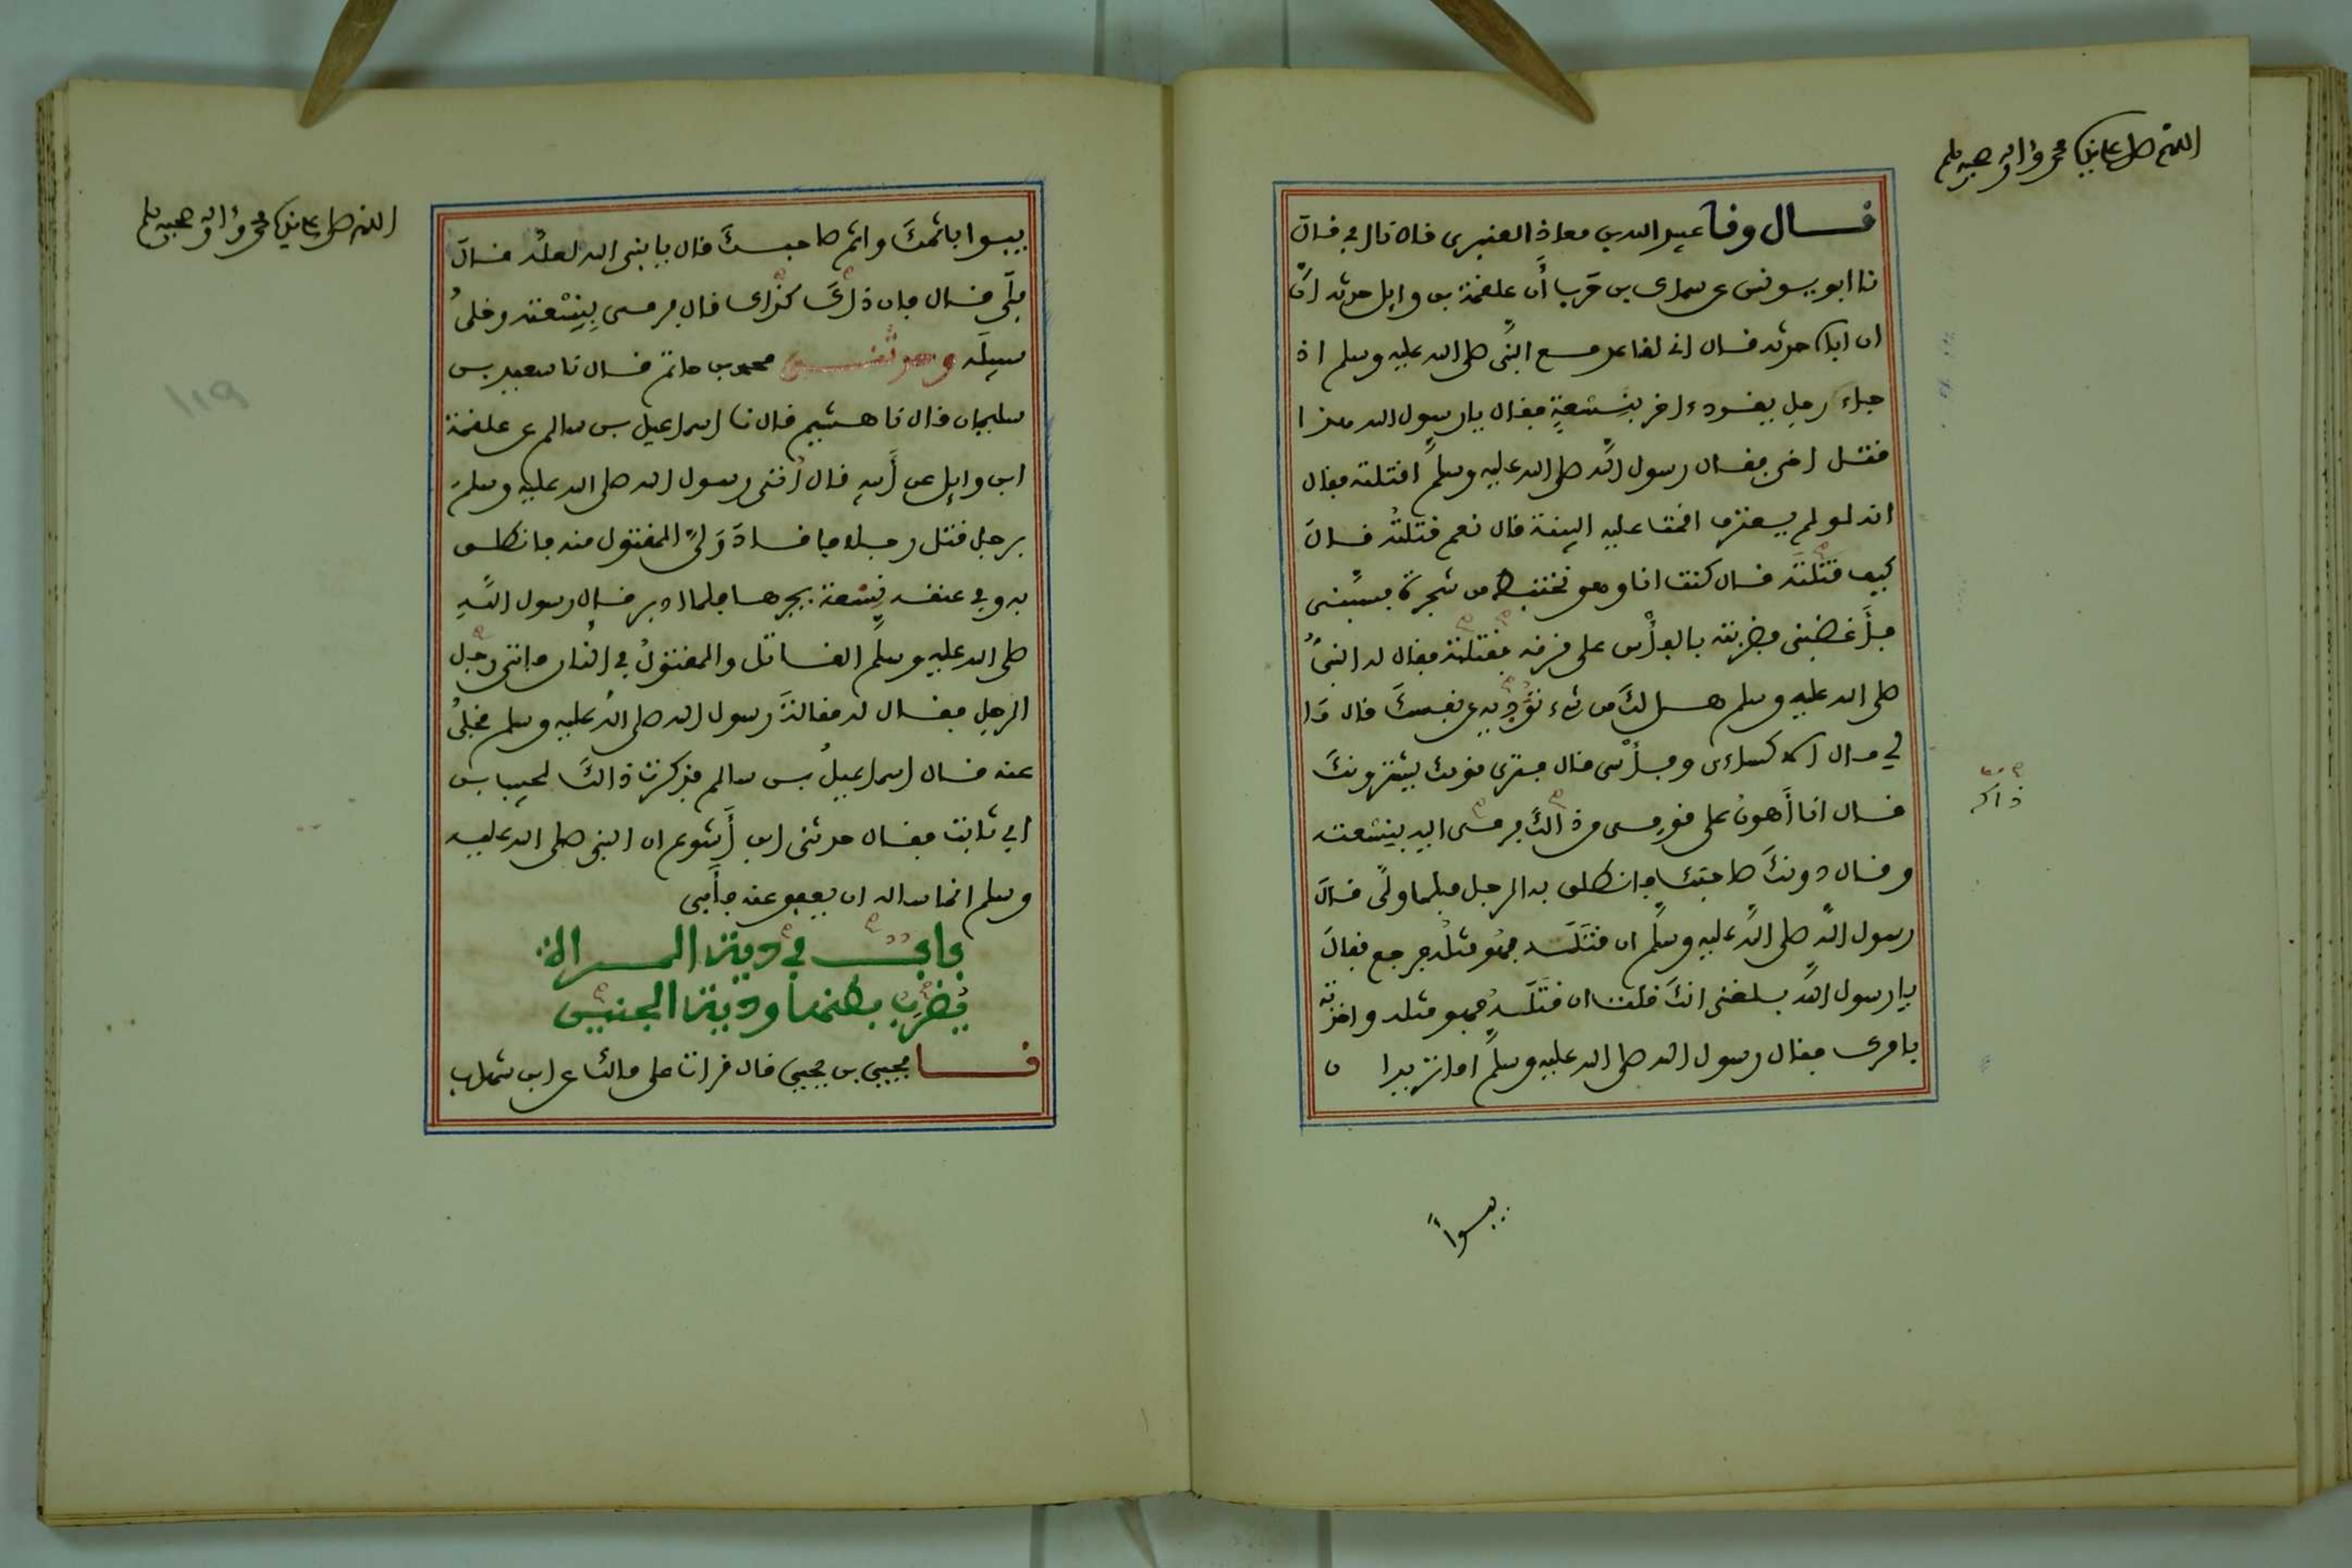 اللهم صل على سيدنا محمد وءاله وصحبه وسلم
قال ونا عبيد الله بن معاذ العنبري قال نا ابي قال
نا ابو يونس عن سماك بن حرب أن علقمة بن وايل حدثه انَّ
ان اباه حدثه قال اني لقاعد مع النبيِّ صلى الله عليه وسلم اذ
جاء رجل يقود ءاخر بِنِسْعةٍ فقال يا رسول الله هذا
قتل اخي فقال رسول اللَّه صلى الله عليه وسلَّم اقتلته فقال
انه لو لم يعترف اقمت عليه البينة قال نعم قتلتُه قال
كيف قتلتَه قال كنت انا وهو نختبط من شجرة فسبَّني
فأَغضبني فضربته بالفأْس على قرنه فقتلته فقال له النبيُّ
صلى الله عليه وسلم هل لكَ من شيء تؤَدِّيه عن نفسكَ قال مَا
لي مال الا كساءي وفأْسي قال فترى قومك يشترونكَ
قال انا أَهونُ على قومي من ذاكَ فرمى اليه بنسْعته
ذاك
وقال دونكَ صاحبك فانطلق به الرجل فلما ولَّى قالَ
رسول اللَّه صلى اللَّه عليه وسلَّم ان قتَلَه فهُو مثلُه فرجع فقالَ
يا رسول اللَّه بلغني انكَ قلت ان قتَلَه فهو مثله واخذته
بامرك فقال رسول الله صلى الله عليه وسلَّم اما تريد ان
يبوأَ
اللهم صل على سيدنا محمد وءاله وصحبه وسلم
يبوا باثمكَ واثم صاحبكَ قال يا نبي الله لعلَّه قالَ
بلَى قال فان ذاكَ كذاك قال فرمى بِنِسْعته وخلَّى
سبيلَه وحدثني محمد بن حاتم قال نا سعيد بن
سليمان قال نا هشيم قال نا اسماعيل بن سالم عن علقمة
ابن وايل عن أَبيه قال أُتي رسول الله صلى الله عليه وسلمَ
برجل قتل رجلا فاقادَ وَليَّ المقتول منه فانطلق
به وفي عنقه نِسْعة يجرها فلما ادبر قال رسول اللَّهِ
صلى الله عليه وسلَّم القاتل والمقتولُ في النَّار فاتى رجل
الرجل فقال له مقالةَ رسول الله صلى اللَّه عليه وسلم فخلَّى
عنه قال اسماعيلُ بن سالم فذكرت ذالكَ لحبيب بن
ابي ثابت فقال حدثني ابن أَشوع ان النبي صلى الله عليه
وسلم انما ساله ان يعفو عنه فأَبى
باب في دية المراة
يُضْرَب بطنها ودية الجنين
نا يحيى بن يحيى قال قرات على مالك عن ابن شهاب
119